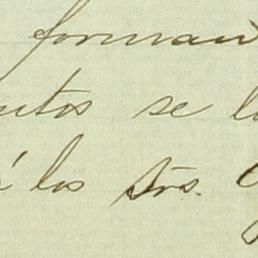 forman
utos se l
á los Sres.